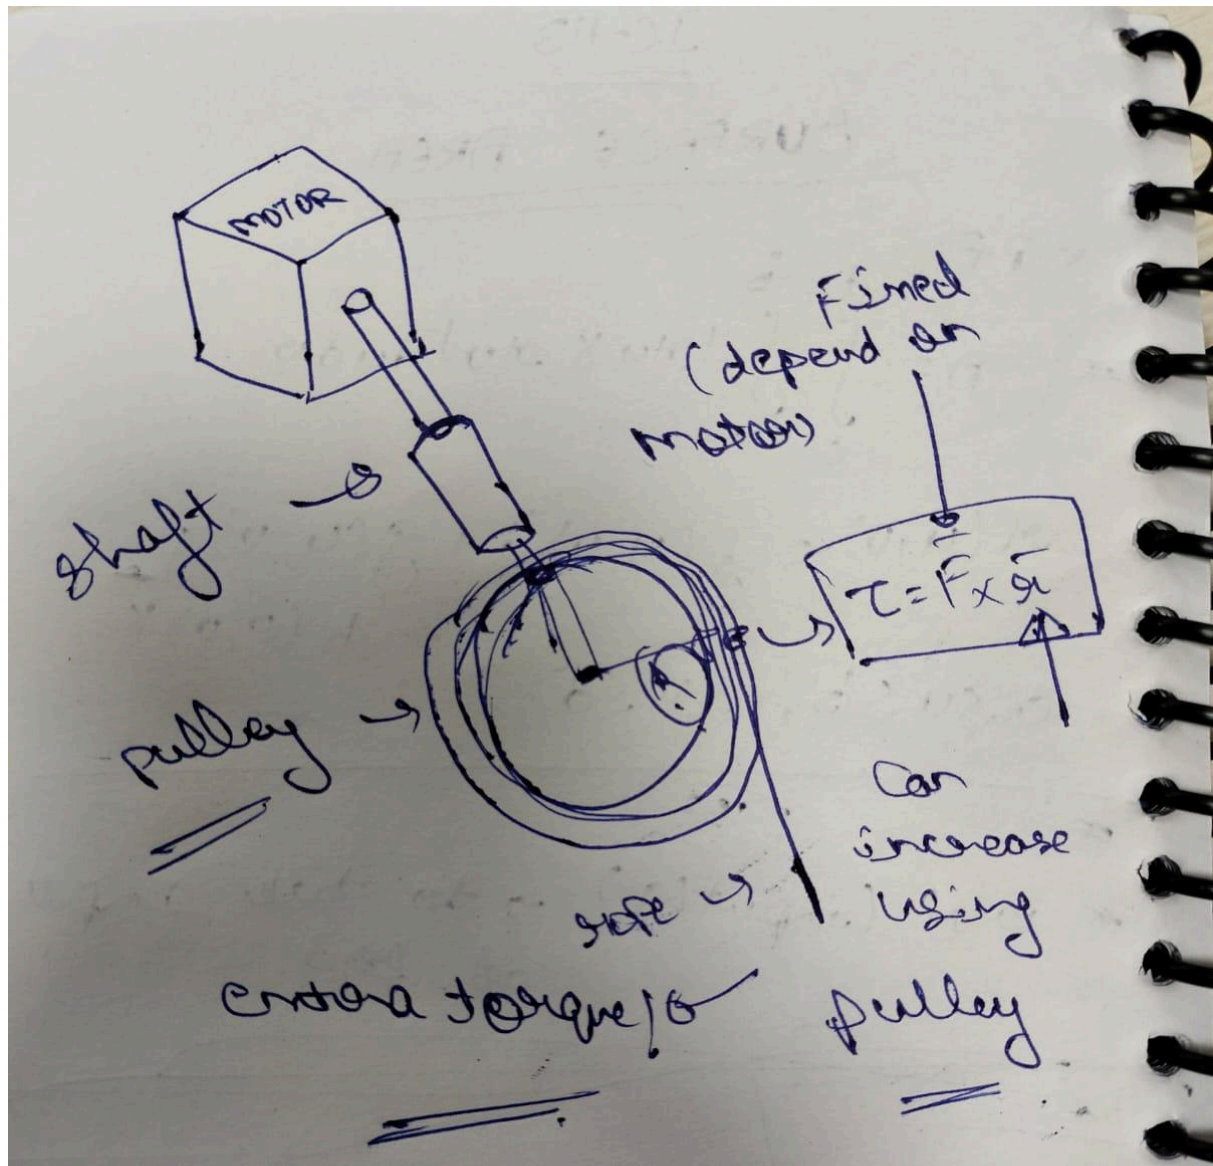 MOTOR
Fixed
(depend on
motor)
shaft
τ = F̄ x r̄
pulley
R
Can
increase
using
pulley
rope
extra torque